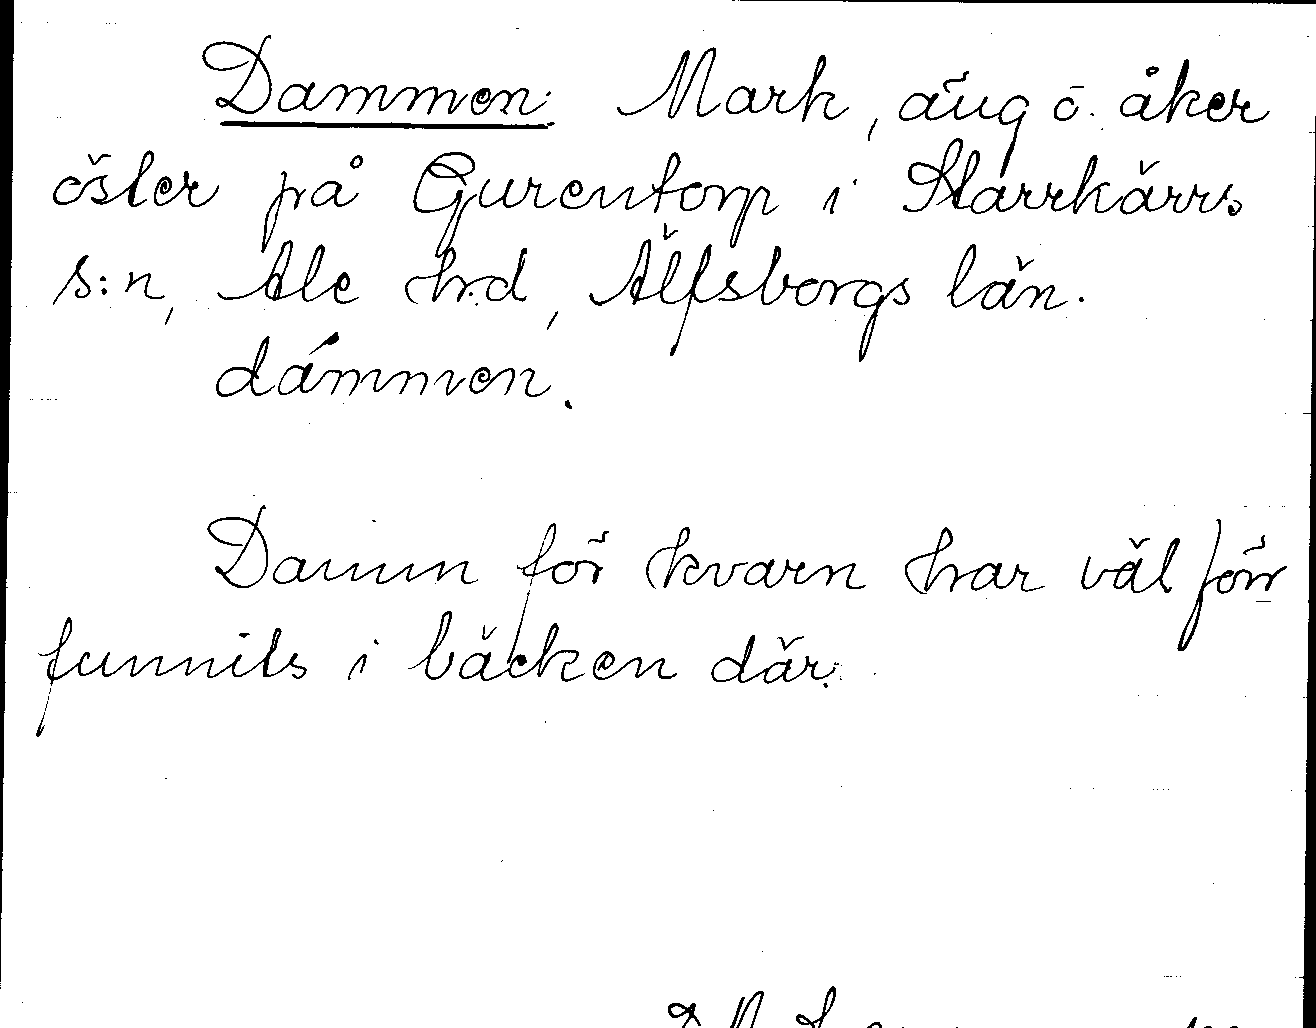 Dammen: Mark, äng o. åker
öster på Gurentorp i Starrkärrs
s:n, Ale hrd, Älfsborgs län.
dámmen.
Damm för kvarn har väl förr
funnits i bäcken där.